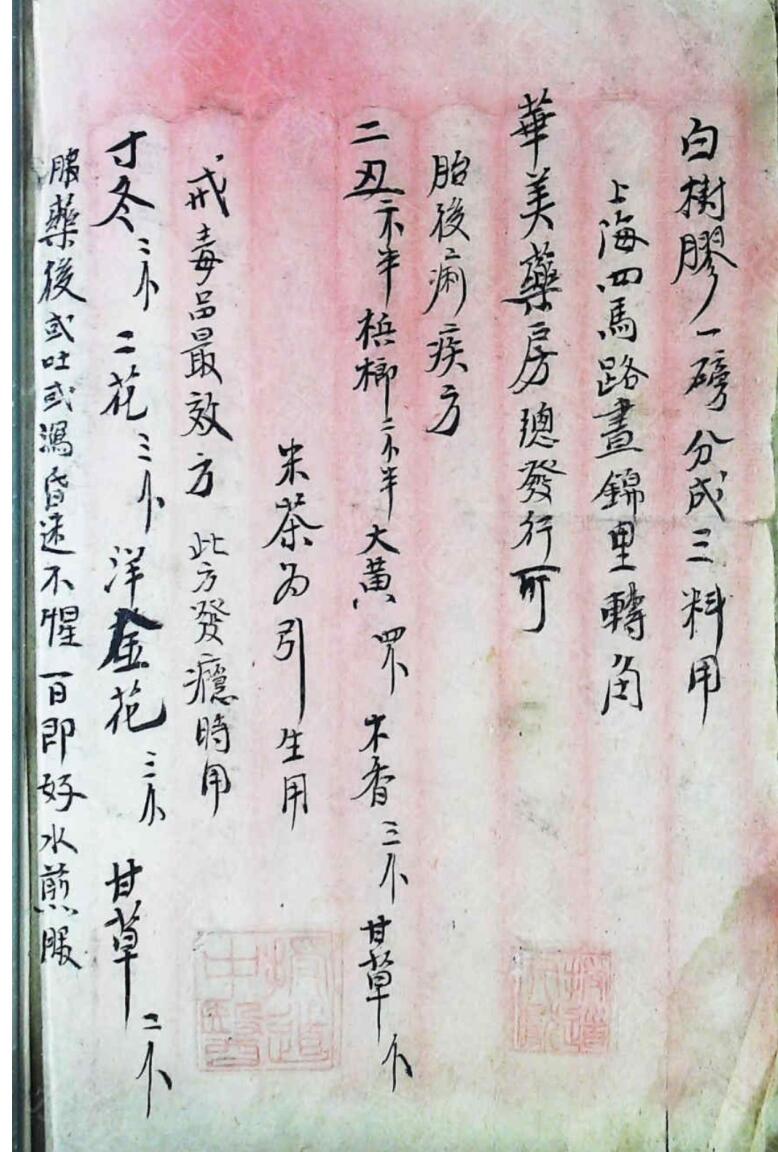 白樹膠一磅分成三料用
上海四馬路晝錦里轉角
華美藥房總發行所
胎後痢疾方
二丑 半 梹榔 二 半 大黄 四 木香 三 甘草
米茶為引 生用
戒毒品最效方 此方發癮時用
寸冬 三 二花 三 洋金花 三 甘草 二
服藥後或吐或瀉昏迷不惺一日即好水煎服